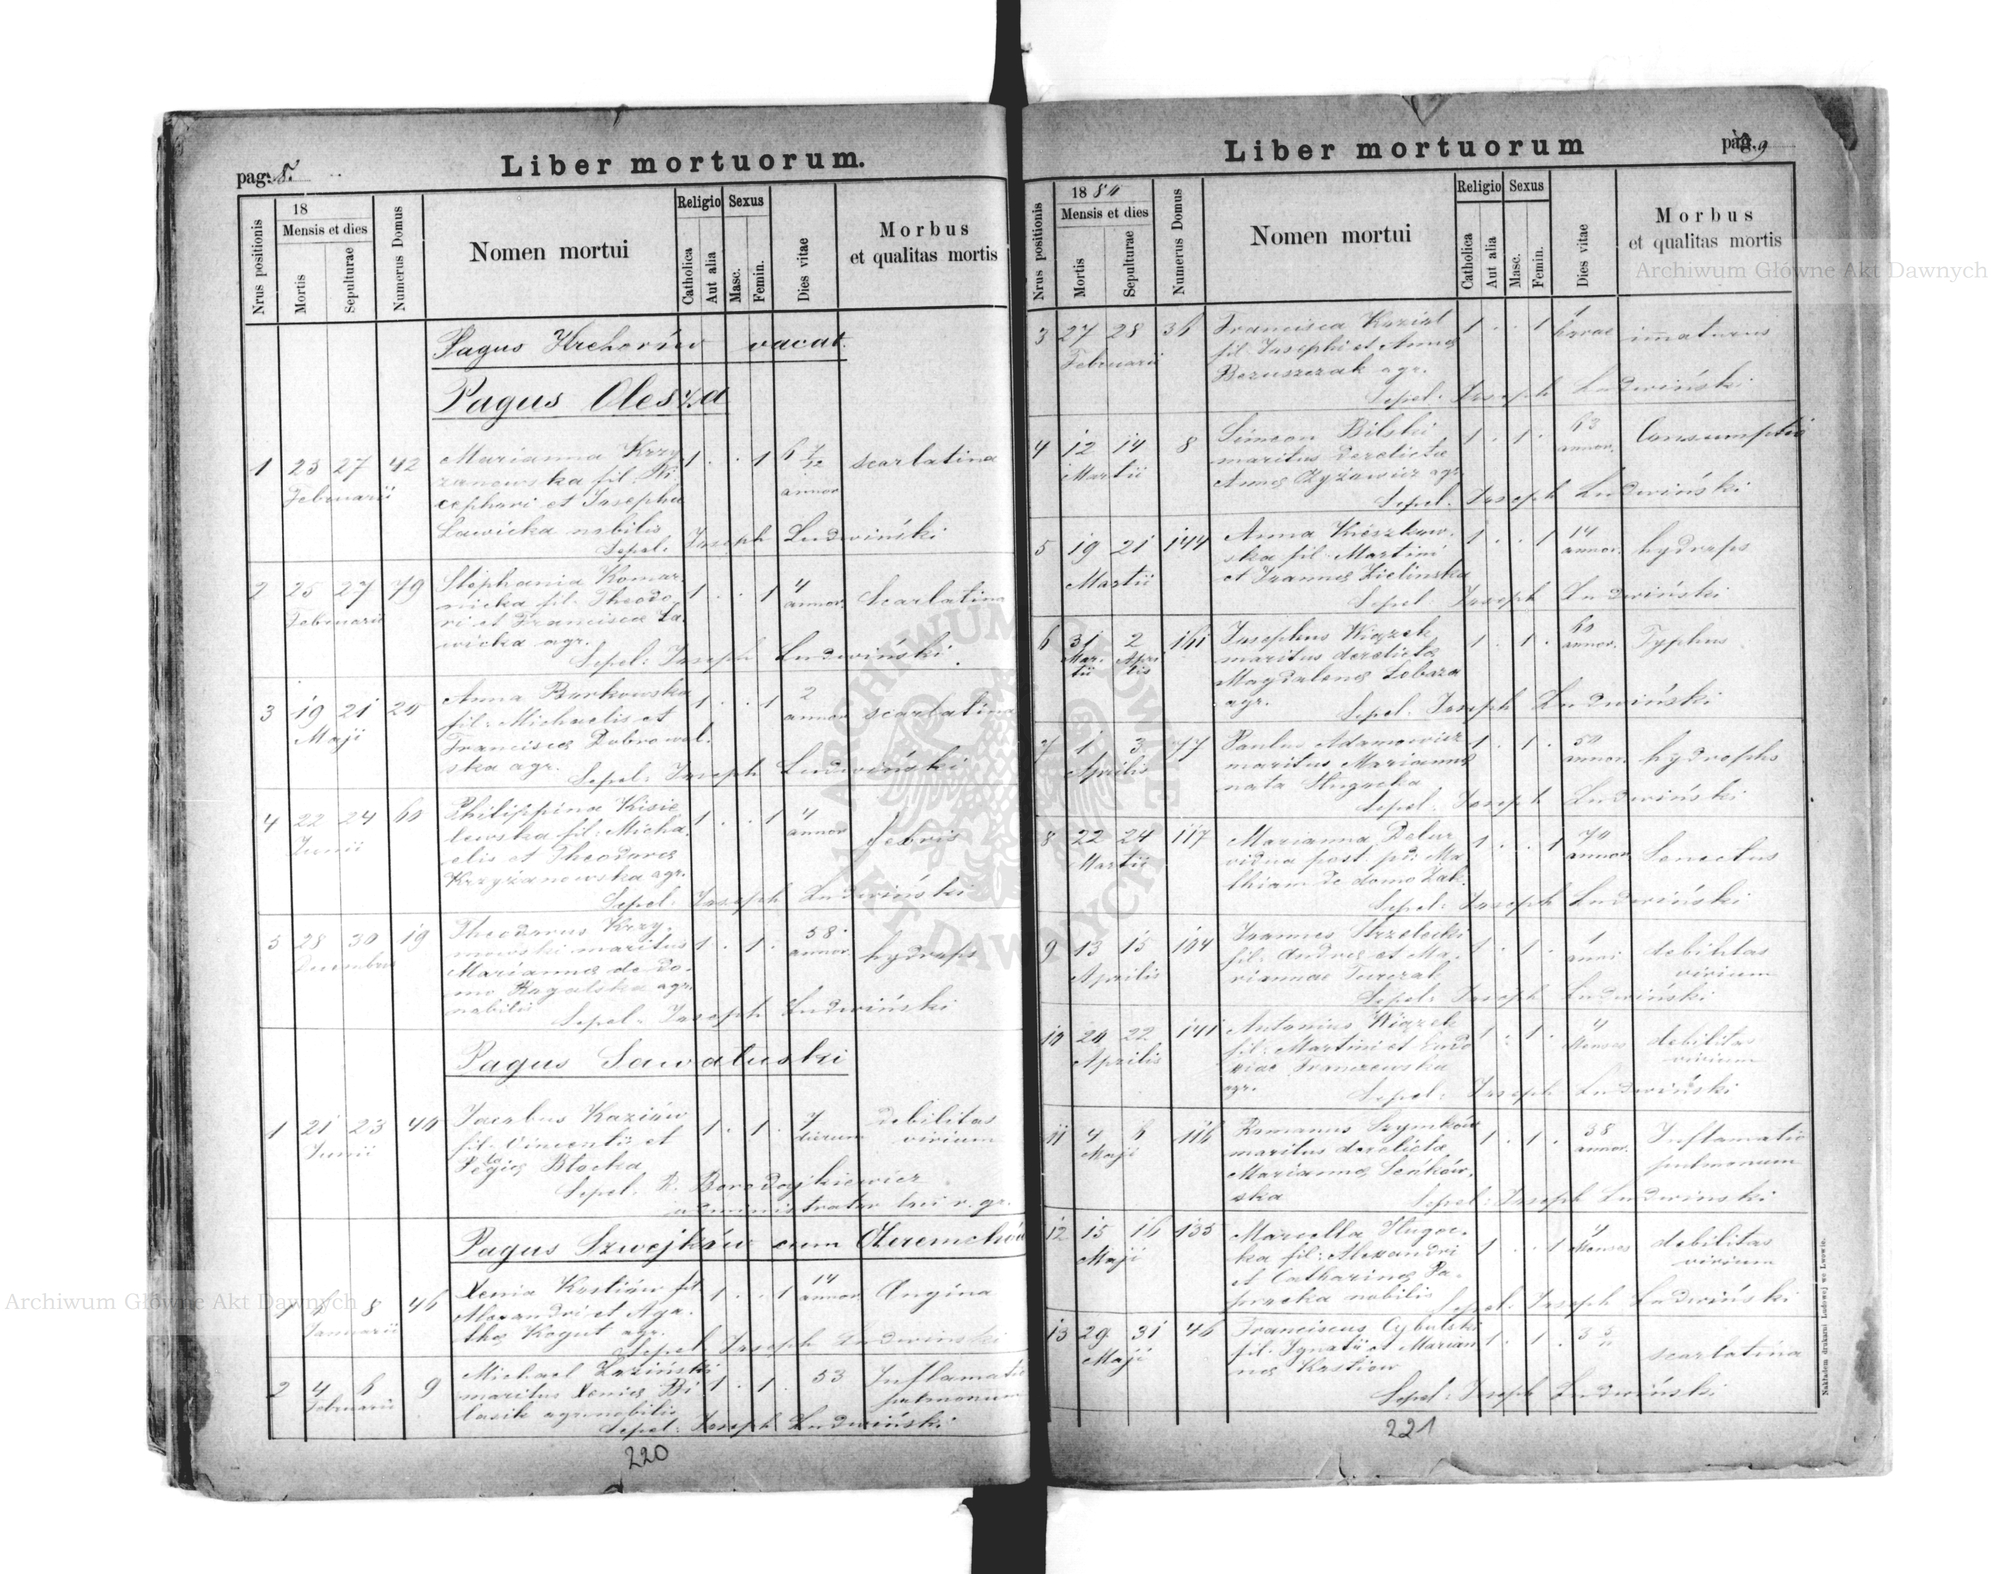 pag. 8.
Liber mortuorum.
Nrus positionis
18
Mensis et dies
Mortis
Sepulturae
Numerus Domus
Nomen mortui
Religio
Catholica
Aut alia
Sexus
Masc.
Femin.
Dies vitae
Morbus
et qualitas mortis
Pagus Hrehorów vacat.
Pagus Olesza
1 25 27 42 Marianna Krzy 1 . . 1 6 7/12 scarlatina
Februarii zanowska fil. Ni annor
cephori et Josepha
Lawicka nobilis
Sepel. Joseph Ludwiński
2 25 27 79 Stephania Komar 1 . . 1 4 Scarlatina
Februarii nicka fil. Theodo annor.
ri et Francisca La
wicka agr.
Sepel: Joseph Ludwiński
3 19 21 25 Anna Burkowska 1 . . 1 2 scarlatina
Maji fil: Michaelis et annor
Francisca Dobrowol
ska agr. Sepel: Joseph Ludwiński
4 22 24 60 Philippina Kisie 1 . . 1 4 febris
Junii lewska fil: Micha annor
elis et Theodora
Krzyżanowska agr.
Sepel: Joseph Ludwiński
5 28 30 19 Theodorus Krzy 1 . 1 . 58 hydrops
Decembris maritus annor.
Marianna de do
mo Rogalska agr.
nobilis Sepel: Joseph Ludwiński
Pagus Sawaluski
1 21 23 40 Jacobus Kaziów 1 . 1 . 7 debilitas
Junii fil: Vincentii et dierum virium
Błocka
Sepel. R. Borodajkiewicz
administrator r. gr.
Pagus Szwejków cum Oleremchów
1 6 8 46 Xenia Kostiów fil 1 . . 1 14 Angina
Januarii Alexandri et Aga annor
tha Kogut agr.
Sepel Joseph Ludwinski
2 4 6 9 Michael Łoziński 1 . 1 . 53 Inflamatio
Februarii maritus Xenia Bi pulmonum
lasik agr. nobilis
Sepel: Joseph Ludwiński
220
Liber mortuorum
pag. 9
Nrus positionis
1884
Mensis et dies
Mortis
Sepulturae
Numerus Domus
Nomen mortui
Religio
Catholica
Aut alia
Sexus
Masc.
Femin.
Dies vitae
Morbus
et qualitas mortis
3 27 28 36 Francisca Kozioł 1 . . 1 1 immaturus
Februarii fil. Josephi et Anna horae
Bezuszczak agr.
Sepel: Joseph Ludwiński
4 12 14 8 Simeon Bilski 1 . 1 . 63 Consumptio
Martii maritus derelictae annor.
Anna Czyżewicz agr.
Sepel. Joseph Ludwiński
5 19 21 144 Anna Kreszkow 1 . . 1 14 hydrops
Martii ska fil: Martini annor.
et Joanna Zielinska
Sepel Joseph Ludwiński
6 31 2 161 Josephus Wiązek 1 . 1 . 60 Typhus
Mar- Apri maritus derelicta annor.
tii lis Magdalena Lobaza
agr. Sepel. Joseph Ludwiński
7 1 3 77 Paulus Adamowicz 1 . 1 . 50 hydrophs
Aprilis maritus Marianna annor.
nata Hugocka
Sepel. Joseph Ludwiński
8 22 24 117 Marianna Delur 1 . . 1 70 Senectus
Martii vidua post pd: Ma annor.
thiam de domo Zak.
Sepel: Joseph Ludwiński
9 13 15 104 Joannes Strzelecki 1 . 1 . 1 debilitas
Aprilis fil. Andrea et Ma anni virium
riannae Turczak
Sepel: Joseph Ludwiński
10 20 22 141 Antonius Wiązek 1 . 1 . 4 debilitas
Aprilis fil: Martini et Eudo Menses virium
xiae Franczewska
agr. Sepel: Joseph Ludwiński
11 4 6 116 Romanus Szymków 1 . 1 . 38 Inflamatio
Maji maritus derelicta annor. pulmonum
Marianna
ska Sepel: Joseph Ludwinski
12 15 16 135 Marcella Hugoc- 1 . . 1 4 debilitas
Maji ka fil: Alexandri Menses virium
et Catharina Pa-
procka nobilis
Sepel: Joseph Ludwiński
13 29 31 46 Franciscus Cybulski 1 . 1 . 3 scarlatina
Maji fil. Ignatii et Marian
na Kostiow
Sepel: Joseph Ludwiński
221
Nakładem drukarni Ludowej we Lwowie.
Archiwum Główne Akt Dawnych
Archiwum Główne Akt Dawnych
ARCHIWUM GŁÓWNE AKT DAWNYCH